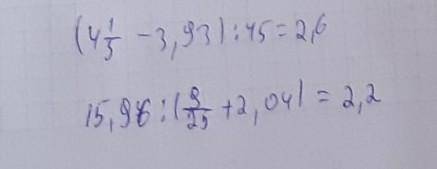 (4 1/5 - 3,93) : 45 = 2,6
15,96 : (9/25 + 2,04) = 2,2